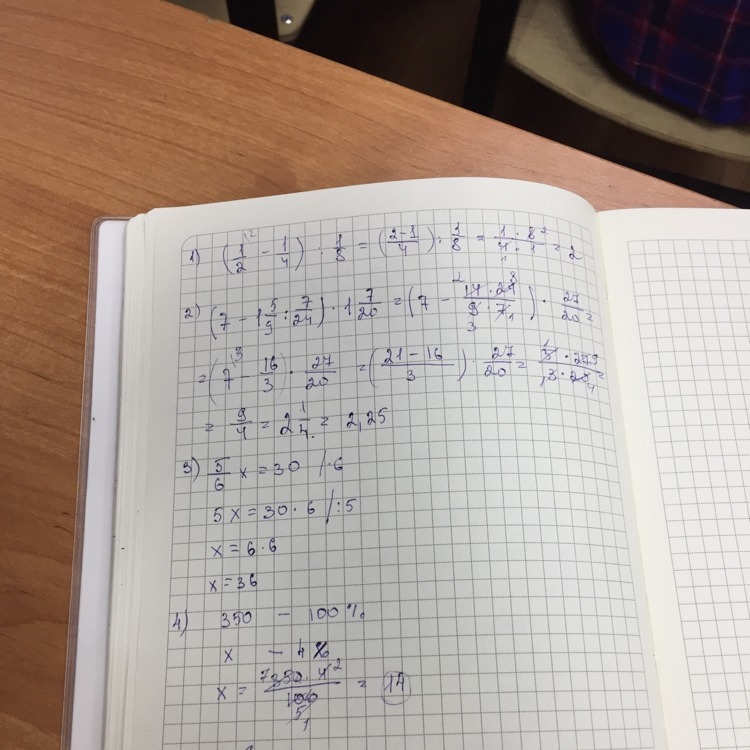 1) (1/2 - 1/4) : 1/8 = (2-1/4) : 1/8 = 1·8/4·1 = 2
2) (7 - 1 5/9 : 7/24) · 1 7/20 = (7 - 14·24/9·7) · 27/20 =
= (7 - 16/3) · 27/20 = (21-16/3) · 27/20 = 5·27/3·20 =
= 9/4 = 2 1/4 = 2,25
3) 5/6 x = 30 /·6
5x = 30·6 /:5
x = 6·6
x = 36
4) 350 - 100%
x - 4%
x = 350·4/100 = 14